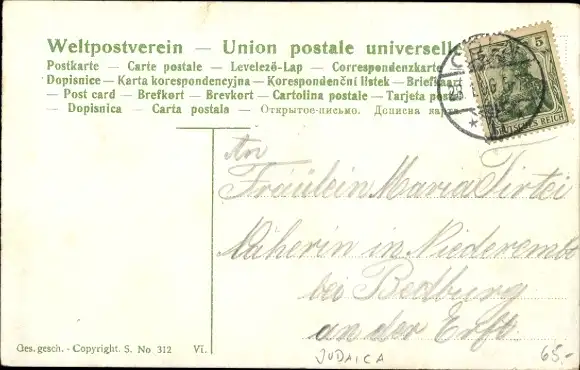 Weltpostverein — Union postale universelle
Postkarte — Carte postale — Levelező-Lap — Correspondenzkarte
Dopisnice — Karta korespondencyjna — Korespondenční lístek — Briefkaart
— Post card — Brefkort — Brevkort — Cartolina postale — Tarjeta postal
— Dopisnica — Carta postala — Открытое-письмо. Дописна карта
5
DEUTSCHES REICH
An
Fräulein Maria
Näherin in Niederemb
bei Bedburg
an der Erft.
Ges. gesch. - Copyright. S. No 312 VI.
JUDAICA
65.-